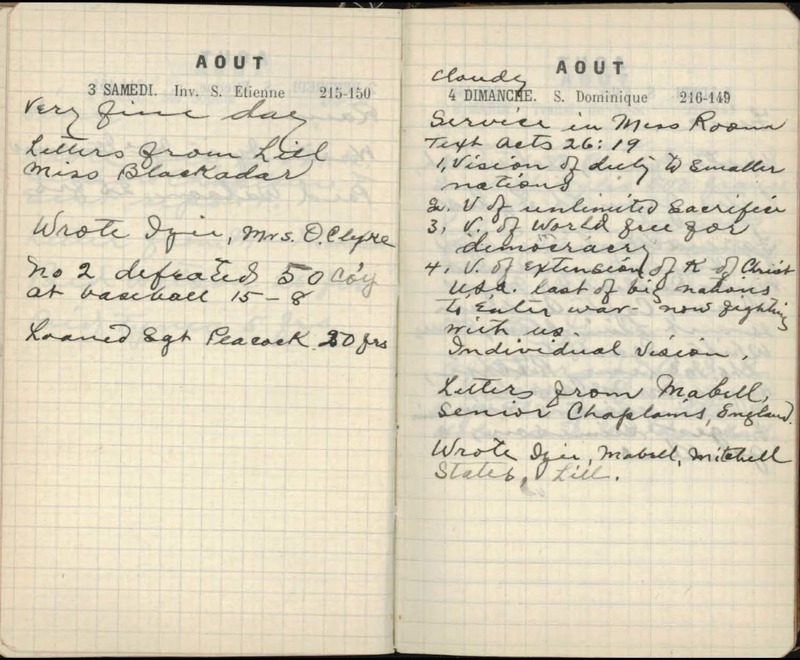 AOUT
3 SAMEDI. Inv. S. Etienne 215-150
Very fine day
Letters from Lill
Miss Blackadar
Wrote Izie, Mrs. O.
No 2 defeated 50 Coy
at baseball 15-8
Loaned Sgt Peacock 20 frs
AOUT
cloudy
4 DIMANCHE. S. Dominique 216-149
Service in Mess Room
Text Acts 26:19
1, Vision of duty to smaller
nations
2. V of unlimited Sacrifice
3, V. of World free for
democracy
4, V. of extension of K of Christ
U.S.A. last of big nations
to enter war - now fighting
with us.
Individual Vision.
Letters from Mabell,
Senior Chaplains, England.
Wrote Izie, Mabell, Mitchell
Lill.